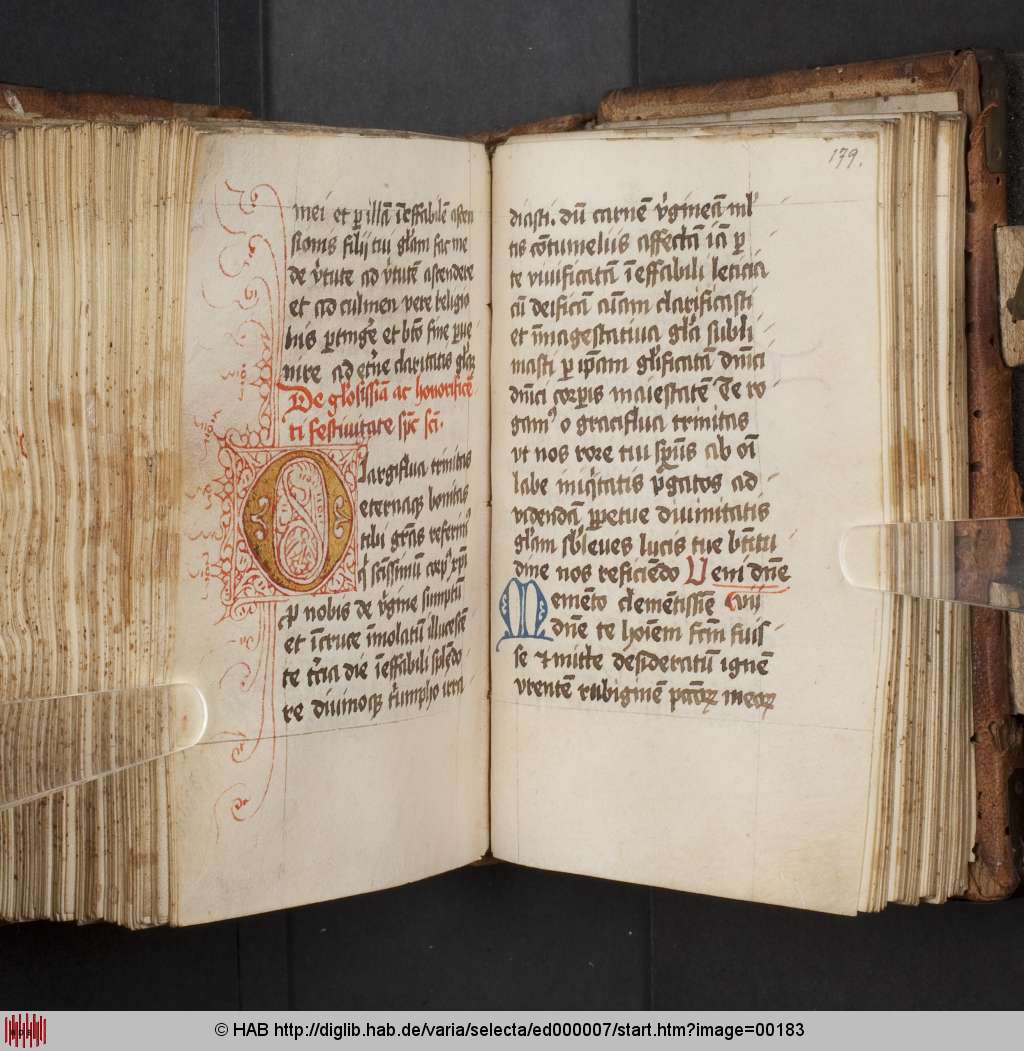 mei et ꝑ illā īeffabilē ascen
sionis filij tui gl̄am fac me
de v̄tute ad v̄tutē ascendere
et ad culmen vere religio
nis ꝑtinge᷑ et btō fine ꝑue
nire ad et̄ne claritatis gl̄aꝫ
De gl̄osissīa ac honorificē
ti festiuitate sp̄c sc̄i.
O largiflua trinitas
eternaqꝫ bonitas
tibi gr̄as referim᷒
q̄ sc̄issimū corp᷒ xp̄i
ꝓ nobis de v̄gine sumptū
et ī cruce īmolatū illucescē
te t̄cia die īeffabili splēdo
re diuinoqꝫ t̄umpho irra
179.
diasti. dū carnē v̄gineā ml̄
tis cōtumeliis affectā iā ꝑ
te viuificatā īeffabili leticia
cū deificā aīam clarificasti
et ī magestatiua gl̄a subli
masti ꝑ ip̄am gl̄ificatā dn̄ici
dn̄ici corꝑis maiestatē Te ro
gam᷒ o graciflua trinitas
vt nos rore tui sp̄us ab oī
labe iniq̄tatis ꝑgatos ad
videndā ꝑpetue diuinitatis
gl̄am sb̄leues lucis tue btītu
dine nos reficiēdo Veni dn̄e
Memēto clemētissīe
dn̄e te hoīem fc̄m fuis
se ⁊ mitte desideratū ignē
vrentē rubiginē pc̄c̄oꝝ meoꝝ
© HAB http://diglib.hab.de/varia/selecta/ed000007/start.htm?image=00183